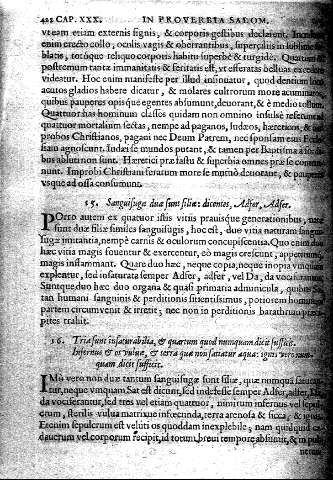 422 CAP. XXX. IN PROVERBIA SALOM.
vt eam etiam externis signis, & corporis gestibus declarent. Incedunt
enim erecto collo, oculis vagis & oberrantibus, superciliis in sublime
blatis, totóque reliquo corporis habitu superbè & turgidè. Quartum &
postremum tanta immanitatis & feritatis est, vt efferatas belluas
videatur. Hoc enim manifestè per illud insinuatur, quòd dentium loco
acutos gladios habere dicatur, & molares cultrorum more acuminatos,
quibus pauperes opisque egentes absumunt, deuorant, & è medio tollunt.
Quattuor has hominum classes quidam non omnino insulsè referunt ad
quattuor mortalium sectas, nempe ad paganos, Iudæos, hæreticos, &
probos Christianos. pagani nec Deum Patrem, nec sponsam eius
siam agnoscunt. Iudæi se mundos putant, & tamen per Baptisma à
bus abluti non sunt. Hæretici præ fastu & superbia omnes præ se
nunt. Improbi Christiani ferarum more se mutuò deuorant, & pauperes
vsque ad ossa consumunt.
15. Sanguisugæ duæ sunt filiæ: dicentes, Adfer, Adfer.
PORRO autem ex quatuor istis vitiis prauisque generationibus, natæ
sunt duæ filiæ similes sanguisugis, hoc est, duo vitia naturam sangui-
sugæ imitantia, nempè carnis & oculorum concupiscentia. Quo enim duo
hæc vitia magis fouentur & exercentur, eò magis crescunt, appetitumque
magis inflammant. Quare duo hæc, neque copia, neque inopia vincuntur
explentur, sed insaturata semper Adfer, adfer, vel Da, da vociferantur.
Suntque duo hæc duo organa & quasi primaria adminicula, quibus Sa-
tan humani sanguinis & perditionis sitientissimus, potiorem hominum
partem circumuenit & irretit; nec non in perditionis barathrum præci-
pites trahit.
16. Tria sunt insaturabilia, & quartum quod nunquam dicit sufficit.
Infernus & os vuluæ, & terra quæ non satiatur aqua: ignis vero nun-
quam dicit sufficit.
IMò vero non duæ tantum sanguisugæ sunt filiæ, quæ numquã saturan-
tur, neque vnquam Sat est dicunt, sed indefessè semper Adfer, adfer, Da,
da vociferantur, sed tres vel etiam quattuor, nimirum infernus vel sepul-
crum, sterilis vulua matrixue infœcunda, terra arenosa & sicca, & ignis.
Etenim sepulcrum est veluti os quoddam inexplebile; nam quidquid ca-
dauerum vel corporum recipit, id totum, breui tempore absumit, & in pul-
uerem